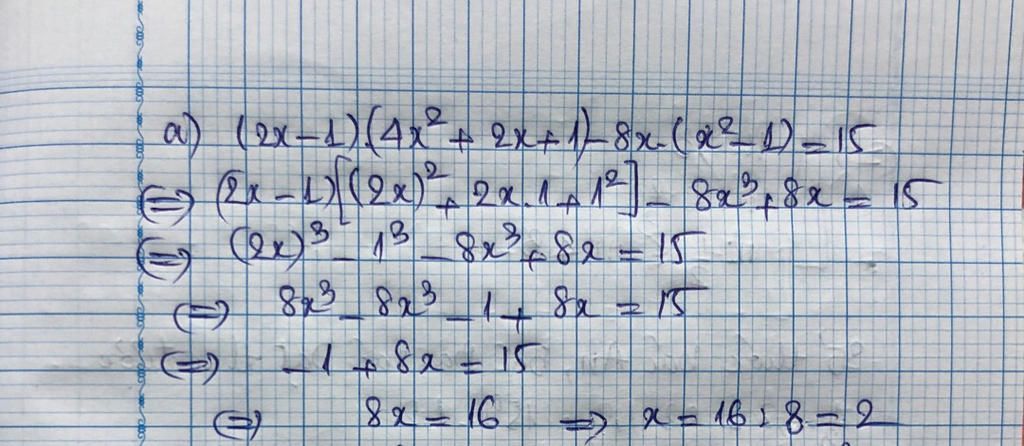 a) (2x-1).(4x²+2x+1)-8x.(x²-1)=15
⇔ (2x-1)[(2x)²+2x.1+1²]-8x³+8x=15
⇔ (2x)³-1³-8x³+8x=15
⇔ 8x³-8x³-1+8x=15
⇔ -1+8x=15
⇔ 8x=16 ⇒ x=16:8=2